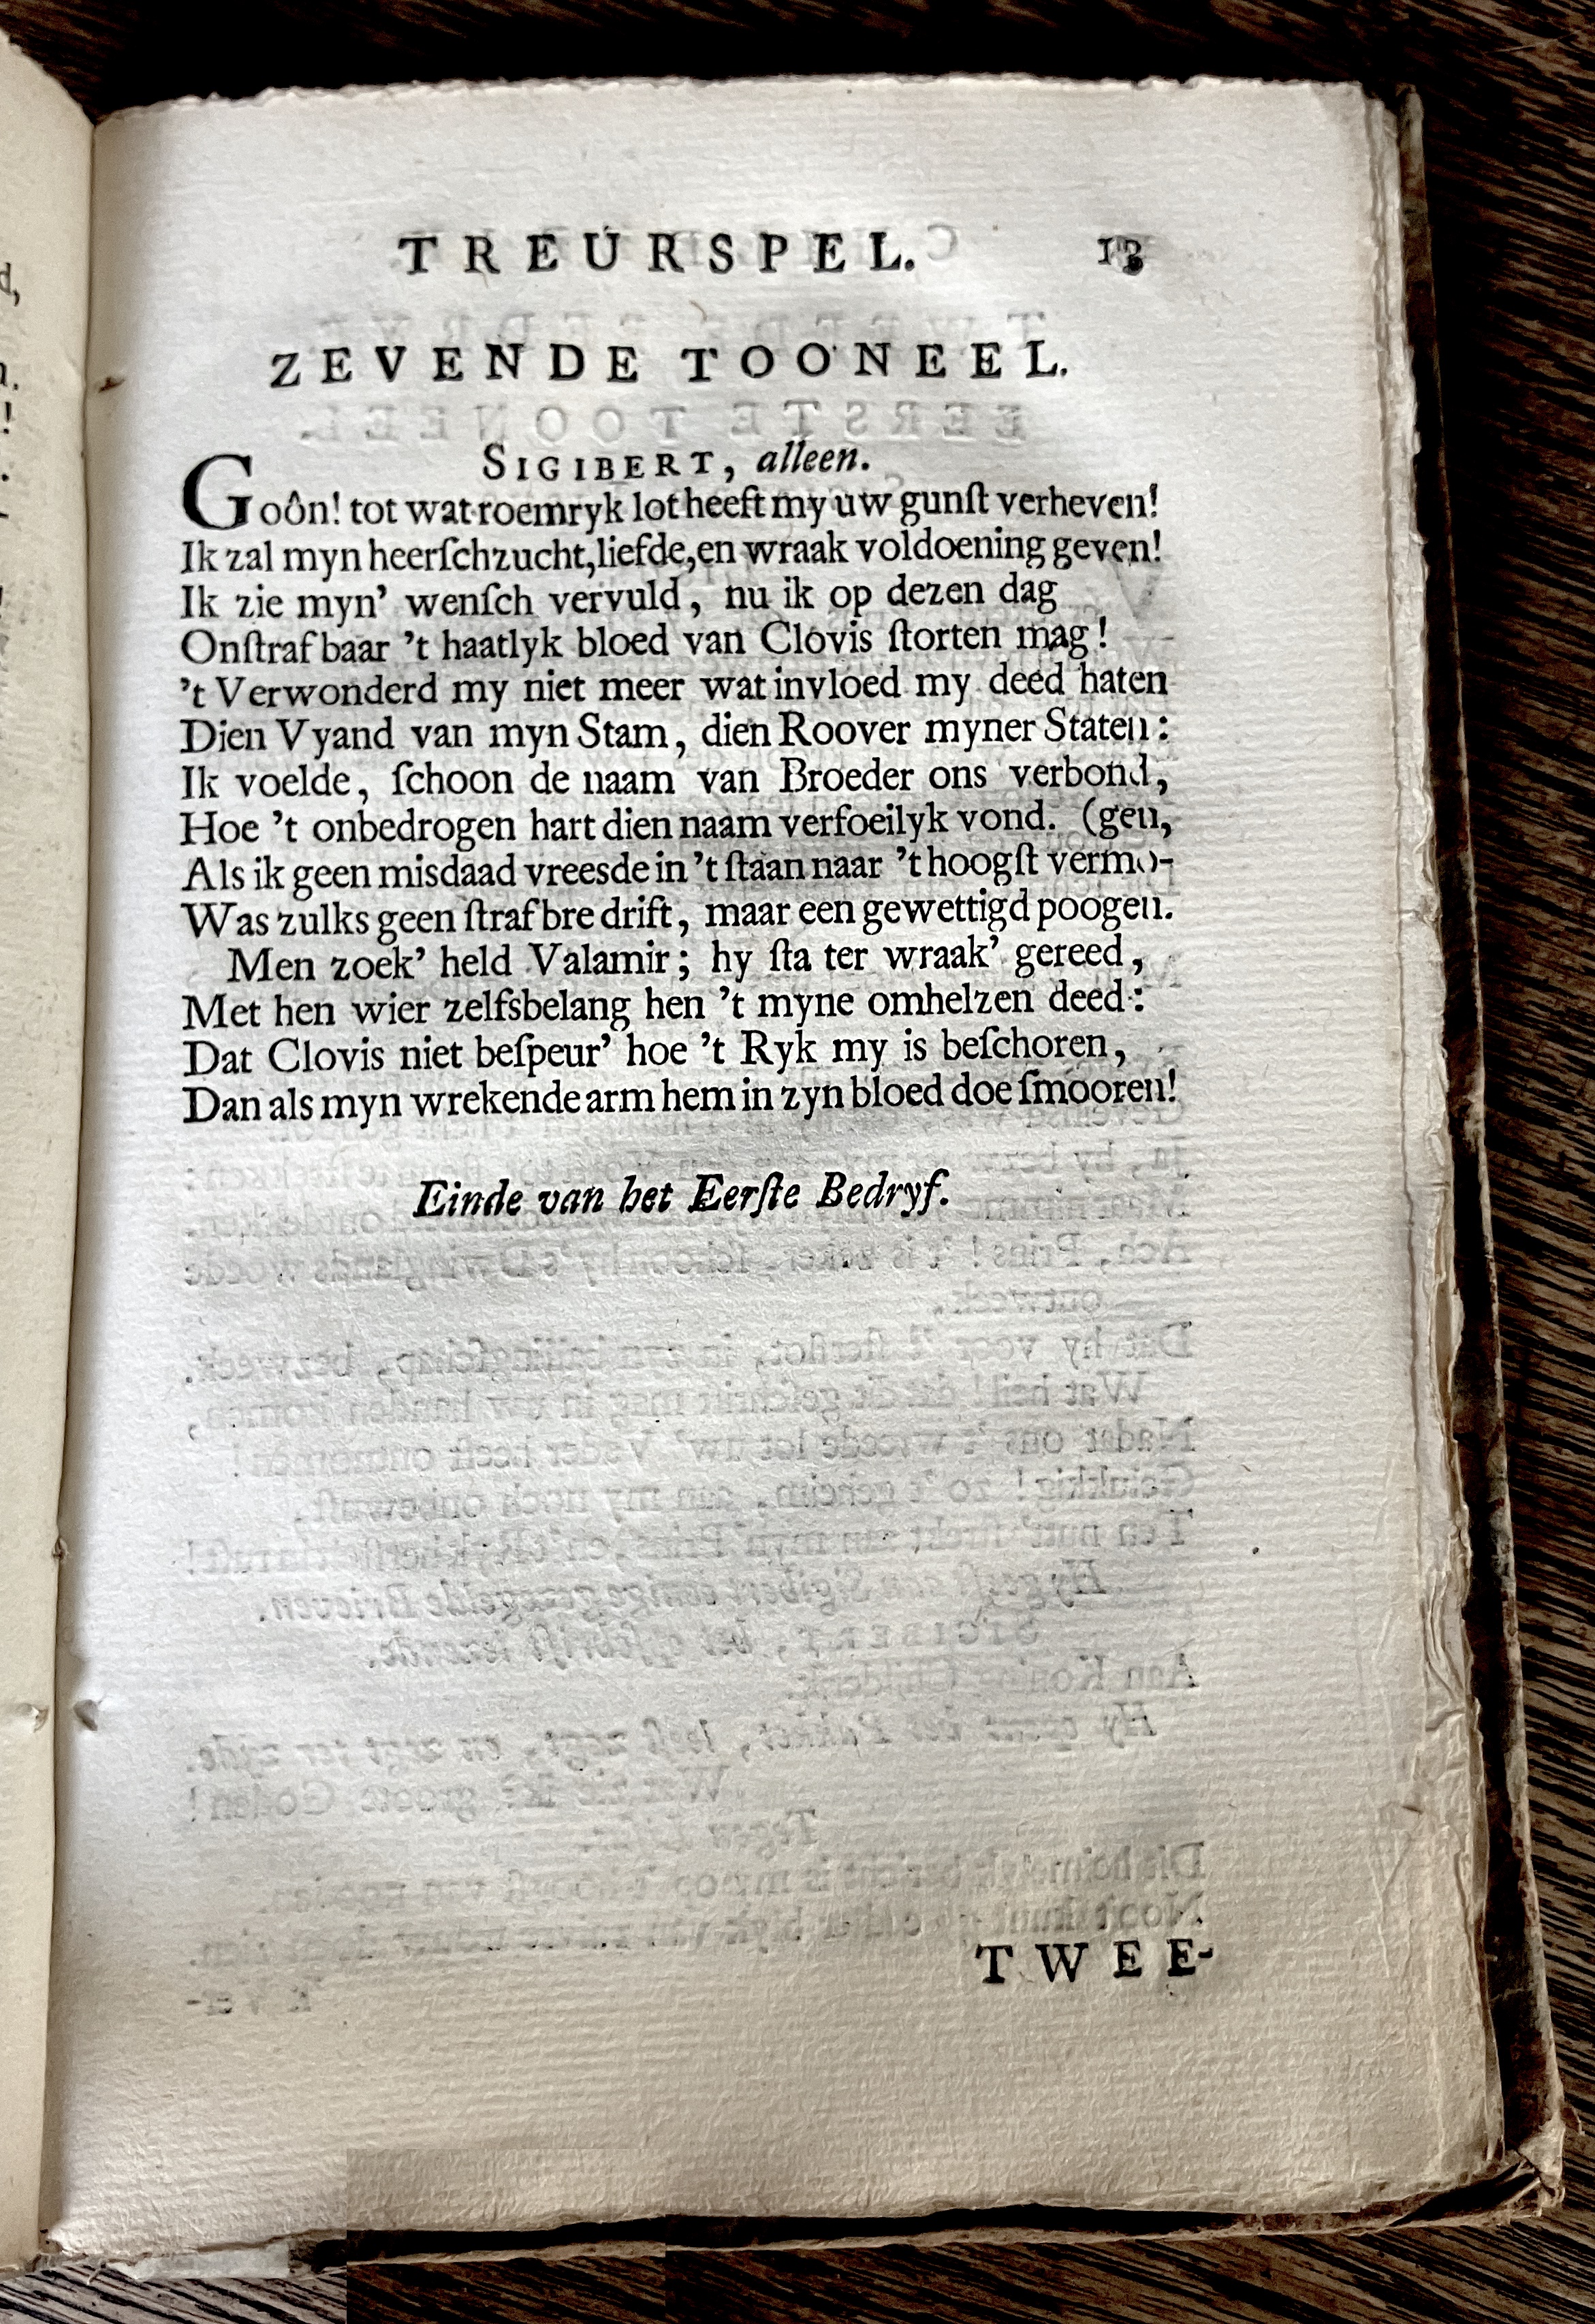 TREURSPEL. 13
ZEVENDE TOONEEL.
SIGIBERT, alleen.
Goôn! tot wat roemryk lot heeft my uw gunſt verheven!
Ik zal myn heerſchzucht, liefde, en wraak voldoening geven!
Ik zie myn’ wenſch vervuld, nu ik op dezen dag
Onſtrafbaar ’t haatlyk bloed van Clovis ſtorten mag!
’t Verwonderd my niet meer wat invloed my deed haten
Dien Vyand van myn Stam, dien Roover myner Staten:
Ik voelde, ſchoon de naam van Broeder ons verbond,
Hoe ’t onbedrogen hart dien naam verfoeilyk vond. (gen,
Als ik geen misdaad vreesde in ’t ſtaan naar ’t hoogſt vermo-
Was zulks geen ſtrafbre drift, maar een gewettigd poogen.
Men zoek’ held Valamir; hy ſta ter wraak’ gereed,
Met hen wier zelfsbelang hen ’t myne omhelzen deed:
Dat Clovis niet beſpeur’ hoe ’t Ryk my is beſchoren,
Dan als myn wrekende arm hem in zyn bloed doe ſmooren!
Einde van het Eerſte Bedryf.
TWEE-